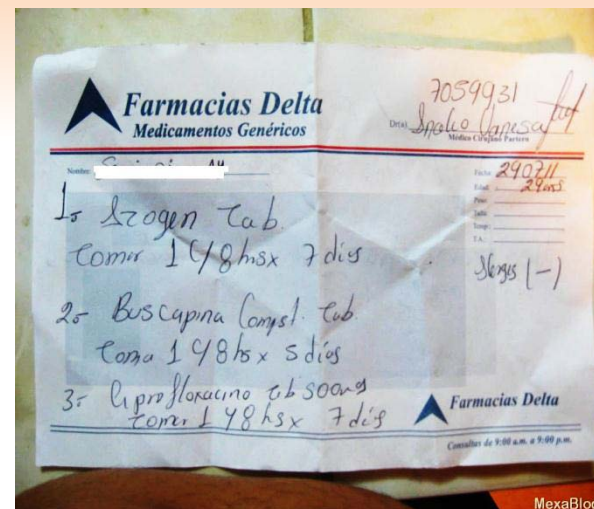 Farmacias Delta
Medicamentos Genéricos
7059931
Dr(a)
Médico Cirujano Partero
Nombre:
Fecha: 290711
Edad: 29 años
Peso:
Talla:
Temp:
T.A.:
1.- Srogen Tab.
Tomar 1 c/8 hsx 7 dias
Alergias (-)
2.- Buscapina Compst. Tab.
Toma 1 c/8 hs x 5 días
3.- Ciprofloxacino tab 500mg
Tomar 1 c/8 hsx 7 dias
Farmacias Delta
Consultas de 9:00 a.m. a 9:00 p.m.
MexaBlog